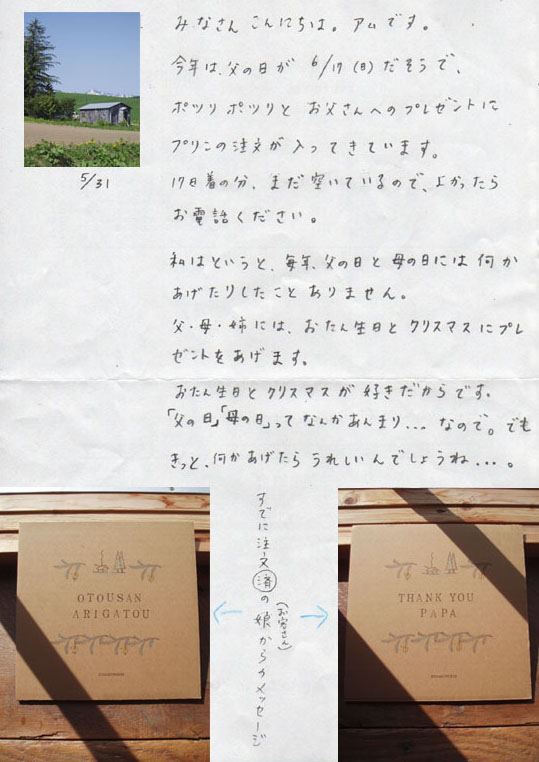 みなさん こんにちは。アムです。
今年は、父の日が 6/17(日)だそうで、
ポツリ ポツリと お父さんへのプレゼントに
プリンの注文が 入ってきています。
17日着の分、まだ空いているので、よかったら
お電話ください。
5/31
私はというと、毎年、父の日と母の日には何か
あげたりしたことありません。
父・母・姉には、おたん生日とクリスマスにプレ
ゼントをあげます。
おたん生日とクリスマスが好きだからです。
「父の日」「母の日」って なんかあんまり... なので。でも
きっと、何かあげたら うれしいんでしょうね...。
すでに注文済の娘からのメッセージ
(お客さん)
OTOUSAN
ARIGATOU
THANK YOU
PAPA